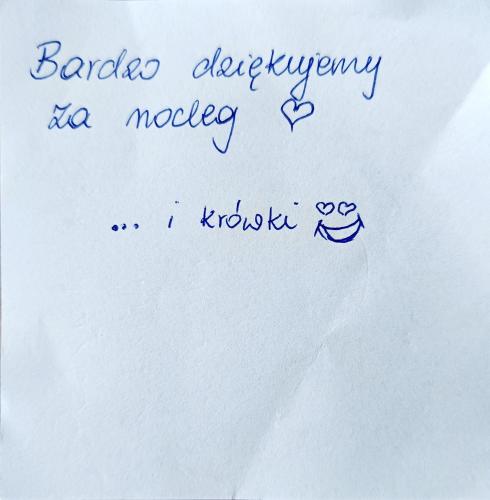 Bardzo dziękujemy
za nocleg ♡
... i krówki